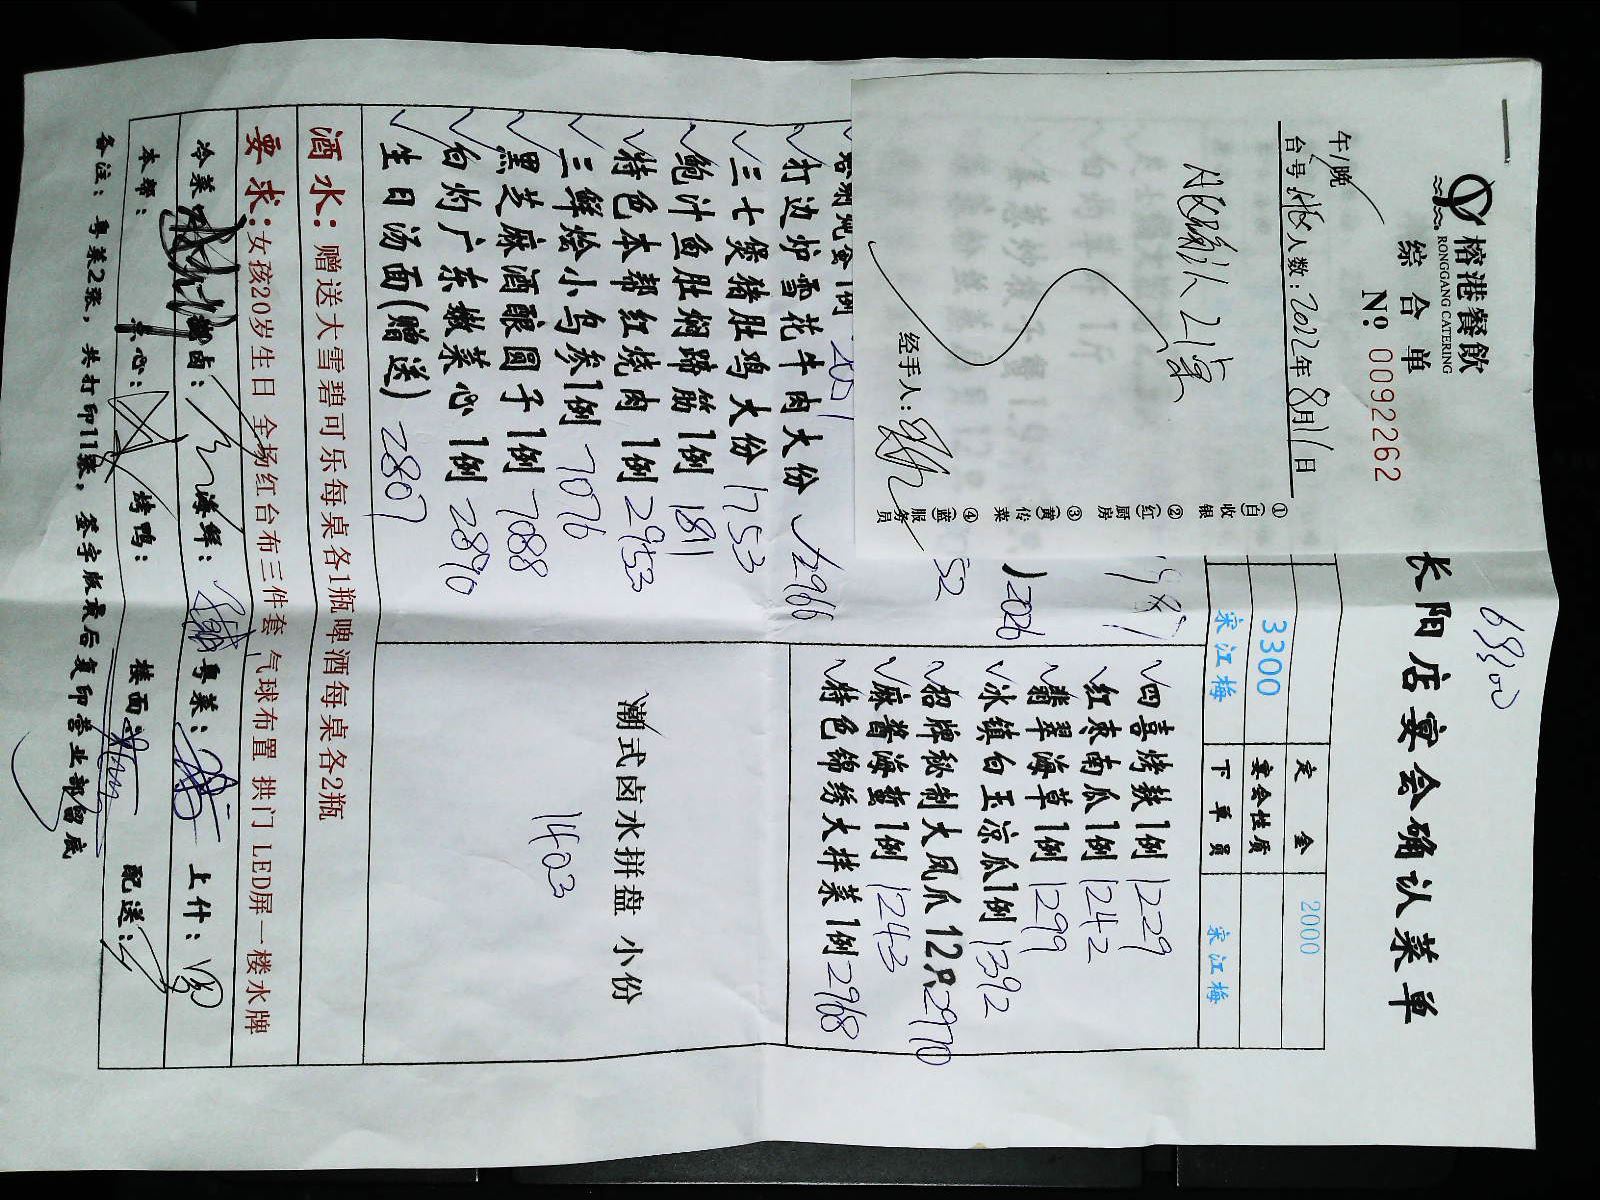 榕港餐飲
RONGGANG CATERING
综合单
№ 0092262
午/晚
台号: 人数: 2022年8月11日
经手人:
①(白)收银
②(红)厨房
③(黄)传菜
④(蓝)服务员
6800
长阳店宴会确认菜单
定金 2000
3300 宴会性质
宋江梅 下单员 宋江梅
四喜烤麸1例 1229
红枣南瓜1例 1242
翡翠海草1例 1299
冰镇白玉凉瓜1例 1392
招牌秘制大凤爪12只 2970
麻酱海蜇1例 1243
特色锦绣大拌菜1例 2968
2026
52
打边炉雪花牛肉大份 2966
三七煲猪肚鸡大份 1753
鲍汁鱼肚焖蹄筋1例 1811
特色本帮红烧肉1例 2953
三鲜烩小乌参1例 7076
黑芝麻酒酿圆子1例 7088
白灼广东嫩菜心1例 2890
生日汤面(赠送) 2807
潮式卤水拼盘 小份
1403
酒水: 赠送大雪碧可乐每桌各1瓶啤酒每桌各2瓶
要求:女孩20岁生日 全场红台布三件套 气球布置 拱门 LED屏 一楼水牌
冷菜: 卤: 海鲜: 粤菜: 上什:
本帮: 点心: 烤鸭: 楼面: 配送:
备注: 粤菜2张, 共打印11张, 签字版最后复印营业部留底